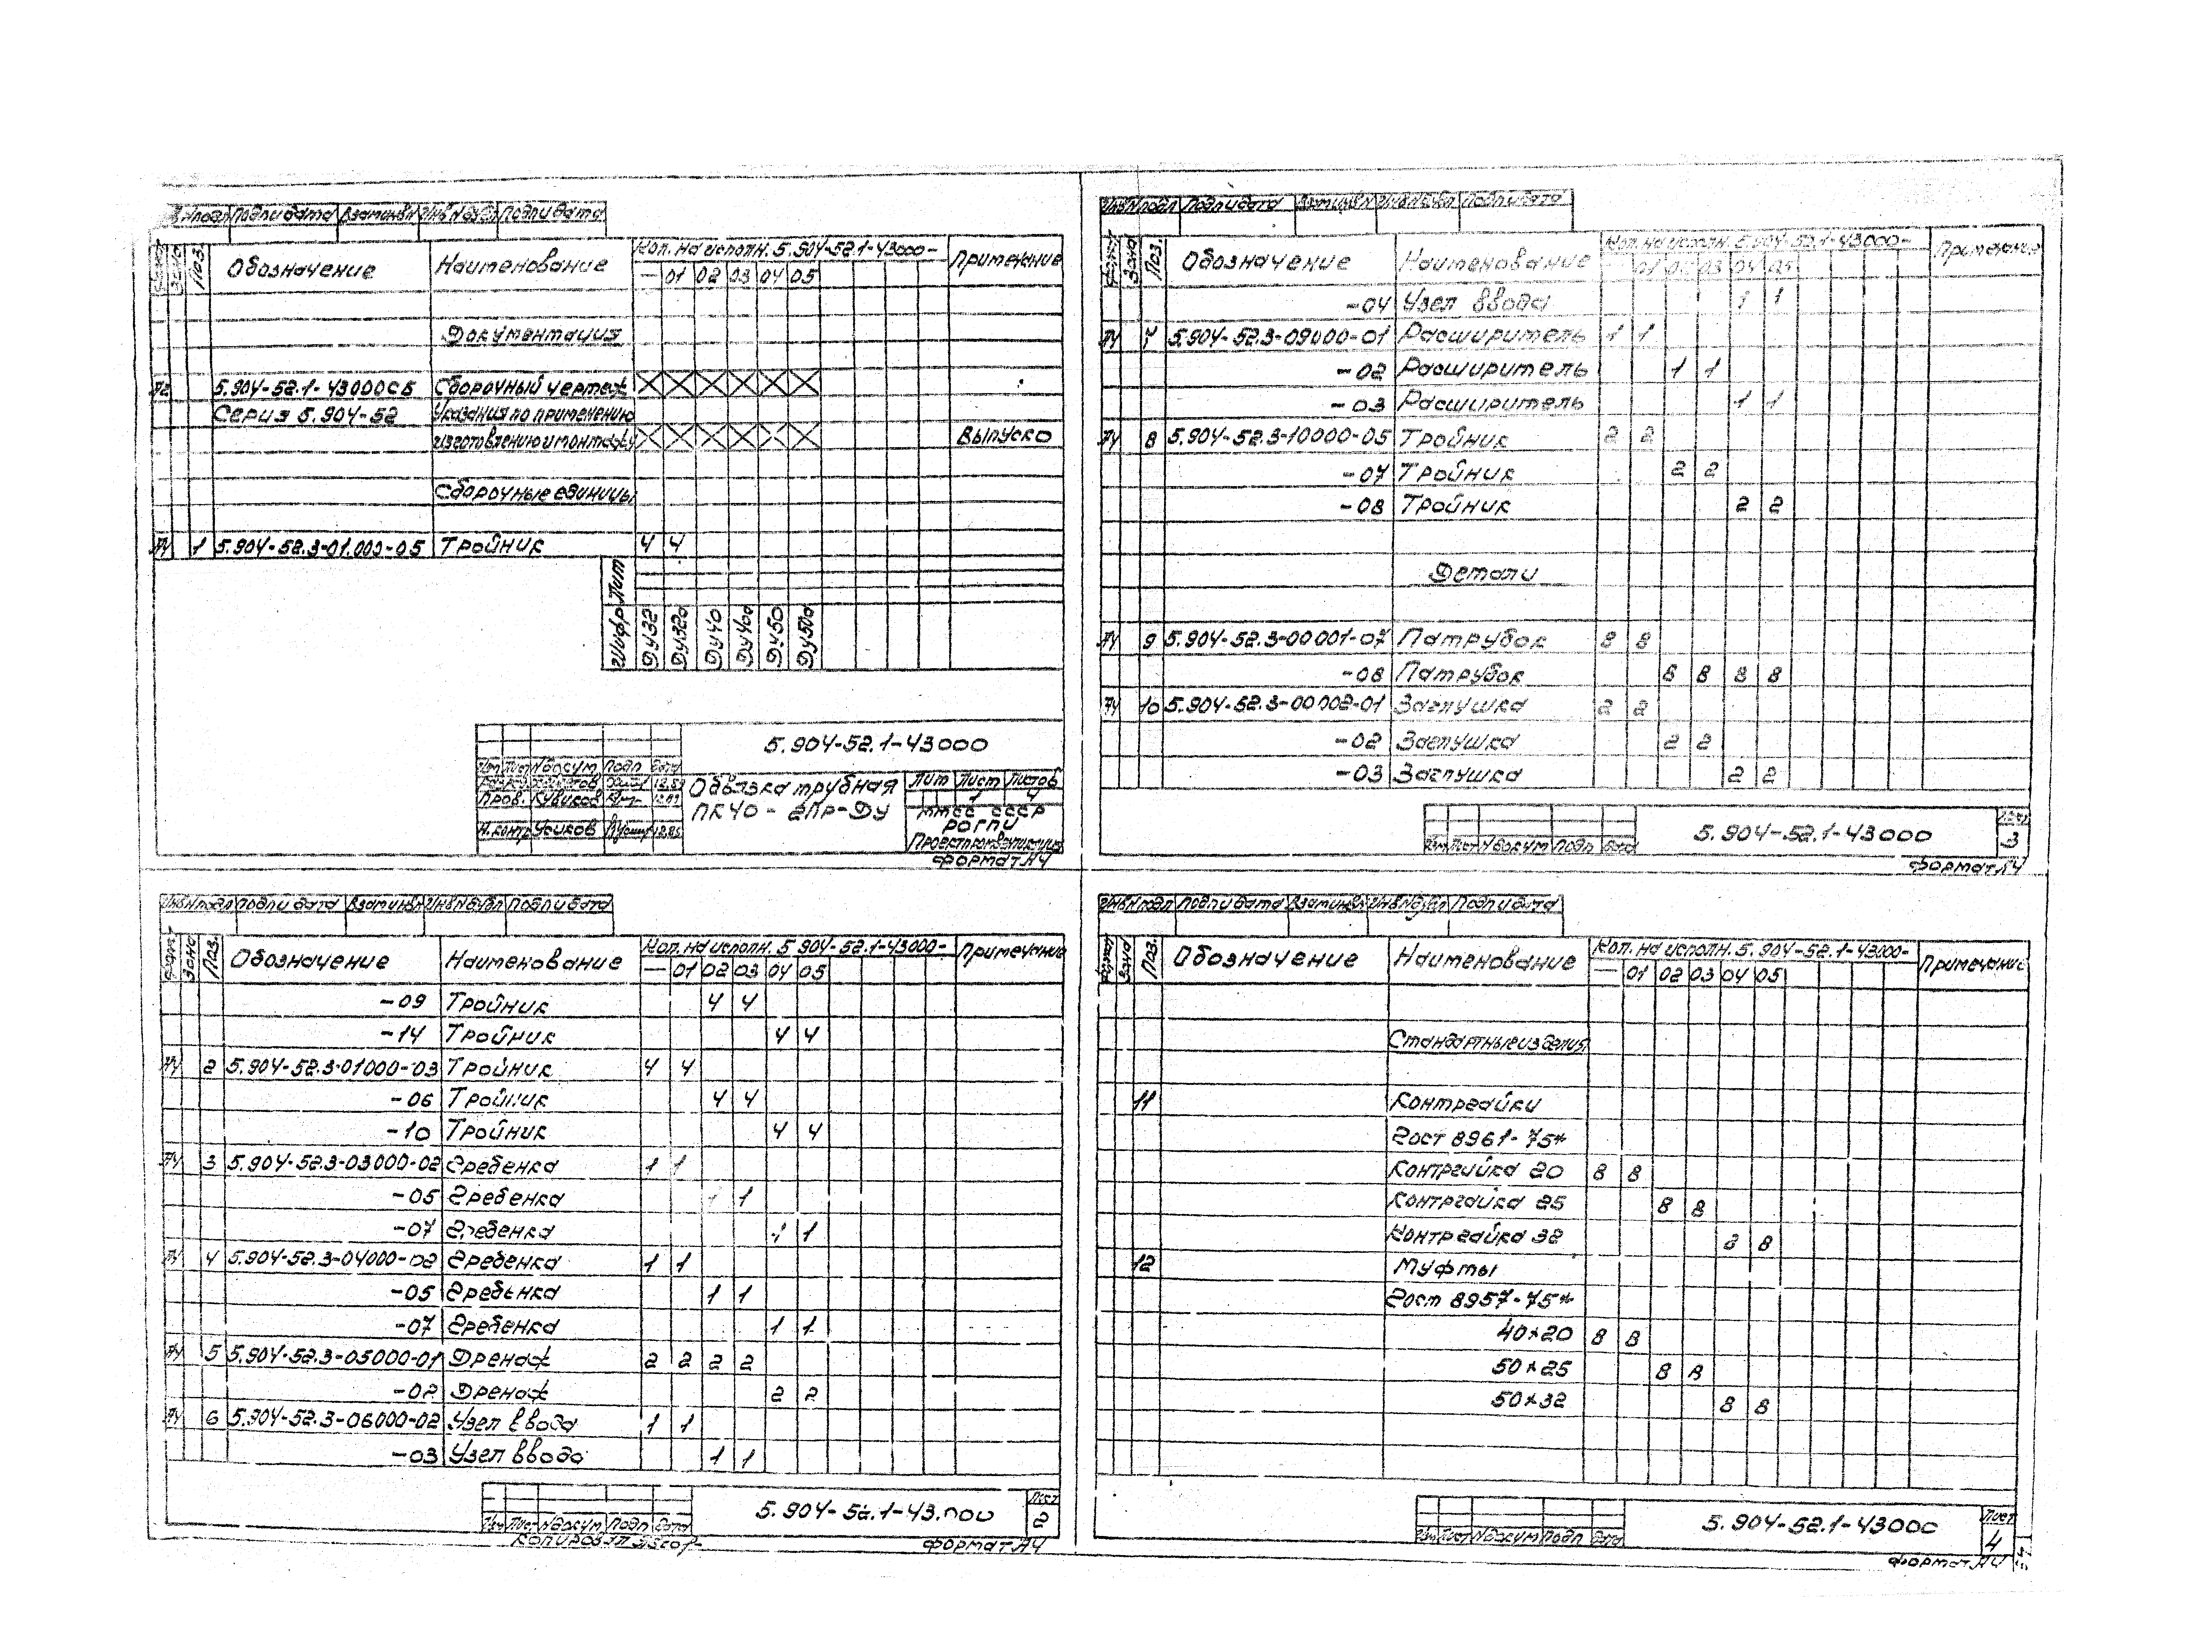 Подпи дата Взам инв N Инв N дубл Подпи дата
Зона Поз. Обозначение Наименование Кол. на исполн. 5.904-52.1-43000- Примечание
— 01 02 03 04 05
Документация
А2 5.904-52.1-43000СБ Сборочный чертеж X X X X X X
Серия 5.904-52 Указания по применению
изготовлению и монтажу X X X X X X Выпуск 0
Сборочные единицы
А4 1 5.904-52.3-01.000-05 Тройник 4 4
Лит
Шифр Ду32 Ду32а Ду40 Ду40а Ду50 Ду50а
5.904-52.1-43000
Изм Лист N докум Подп Дата
12.89
Пров. Кувиков
Н.контр Усиков
Обвязка трубная
ПК40-2ПР-Ду
Лит Лист Листов
1 4
ММСС СССР
РОГПИ
Проектпромвентиляция
Формат А4
Инв N подл Подпи дата Взам инв N Инв N дубл Подпи дата
Формат Зона Поз. Обозначение Наименование Кол. на исполн. 5.904-52.1-43000- Примечание
— 01 02 03 04 05
-09 Тройник 4 4
-14 Тройник 4 4
А4 2 5.904-52.3-01000-03 Тройник 4 4
-06 Тройник 4 4
-10 Тройник 4 4
А4 3 5.904-52.3-03000-02 Гребенка 1 1
-05 Гребенка 1 1
-07 Гребенка 1 1
А4 4 5.904-52.3-04000-02 Гребенка 1 1
-05 Гребенка 1 1
-07 Гребенка 1 1
А4 5 5.904-52.3-05000-01 Дренаж 2 2 2 2
-02 Дренаж 2 2
А4 6 5.904-52.3-06000-02 Узел ввода 1 1
-03 Узел ввода 1 1
Изм Лист N докум Подп Дата
5.904-52.1-43.000
Лист
2
Копировал
Формат А4
Инв N подл Подпи дата Взам инв N Инв N дубл Подпи дата
Формат Зона Поз. Обозначение Наименование Кол. на исполн. 5.904-52.1-43000- Примечание
— 01 02 03 04 05
-04 Узел ввода 1 1
А4 7 5.904-52.3-09000-01 Расширитель 1 1
-02 Расширитель 1 1
-03 Расширитель 1 1
А4 8 5.904-52.3-10000-05 Тройник 2 2
-07 Тройник 2 2
-08 Тройник 2 2
Детали
А4 9 5.904-52.3-00001-07 Патрубок 8 8
-08 Патрубок 8 8 8 8
А4 10 5.904-52.3-00002-01 Заглушка 2 2
-02 Заглушка 2 2
-03 Заглушка 2 2
Изм Лист N докум Подп Дата
5.904-52.1-43000
Лист
3
Формат А4
Инв N подл Подпи дата Взам инв N Инв N дубл Подпи дата
Формат Зона Поз. Обозначение Наименование Кол. на исполн. 5.904-52.1-43000- Примечание
— 01 02 03 04 05
Стандартные изделия
11 Контргайки
Гост 8961-75*
Контргайка 20 8 8
Контргайка 25 8 8
Контргайка 32 8 8
12 Муфты
Гост 8957-75*
40×20 8 8
50×25 8 8
50×32 8 8
Изм Лист N докум Подп Дата
5.904-52.1-43000
Лист
4
Формат А4